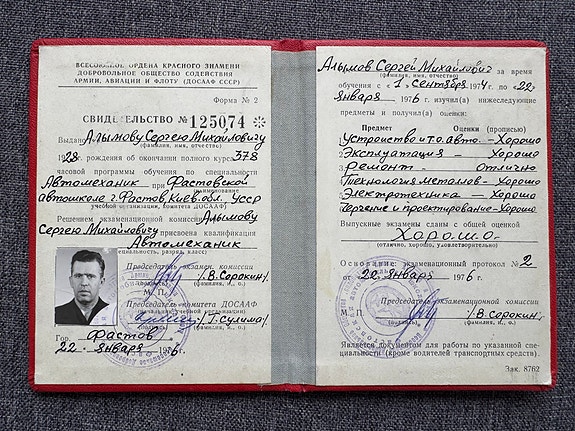 ВСЕСОЮЗНОЕ ОРДЕНА КРАСНОГО ЗНАМЕНИ
ДОБРОВОЛЬНОЕ ОБЩЕСТВО СОДЕЙСТВИЯ
АРМИИ, АВИАЦИИ И ФЛОТУ (ДОСААФ СССР)
Форма № 2
СВИДЕТЕЛЬСТВО № 125074 ✻
Выдано Алымову Сергею Михайловичу
(фамилия, имя, отчество)
1928 рождения об окончании полного курса 378
часовой программы обучения по специальности
Автомеханик при Фастовской
наименование
автошколе г. Фастов, Киев. обл. УССР
учебной организации, комитета ДОСААФ)
Решением экзаменационной комиссии Алымову
Сергею Михайловичу присвоена квалификация
Автомеханик
(специальность, разряд, класс)
Председатель экзамен. комиссии
/В. Сорокин/
М. П. (фамилия, и., о.)
Председатель комитета ДОСААФ
(начальник учебной организации)
/Т. Сулима/
(фамилия, и., о.)
Гор. Фастов
22 января 1976 г.
Алымов Сергей Михайлович за время
(фамилия, имя, отчество)
обучения с «1» сентября 1974 по «22»
января 1976 г. изучил(а) нижеследующие
предметы и получил(а) оценки:
Предмет Оценки (прописью)
Устройство и т.о. авто. – Хорошо
Эксплуатация – Хорошо
Ремонт – Отлично
Технология металлов - Хорошо
Электротехника – Хорошо
Черчение и проектирование - Хорошо
Выпускные экзамены сданы с общей оценкой
Хорошо
(отлично, хорошо, удовлетворительно)
Основание: экзаменационный протокол № 2
от 22 января 1976 г.
Председатель экзаменационной комиссии
/В. Сорокин/
М. П. (подпись) (фамилия, и., о.)
Является документом для работы по указанной спе-
циальности (кроме водителей транспортных средств).
Зак. 8762